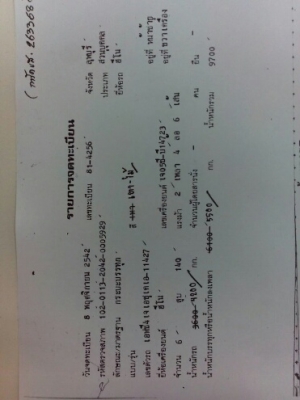 รายการจดทะเบียน
วันจดทะเบียน 8 พฤศจิกายน 2542 เลขทะเบียน 81-4256 จังหวัด
รหัสตรวจสภาพ 102-0113-2042-0005929 ประเภท ส่วนบุคคล
ลักษณะ/มาตรฐาน กระบะบรรทุก ยี่ห้อรถ ฮีโน่
แบบ/รุ่น
เลขตัวรถ อยู่ที่
ยี่ห้อเครื่องยนต์ ฮีโน่ เลขเครื่องยนต์ อยู่ที่ ขวาเครื่อง
จำนวน 6 สูบ 140 แรงม้า 2 เพลา 4 ล้อ 6 เส้น
น้ำหนักรถ กก. จำนวนผู้โดยสารนั่ง - คน ยืน -
น้ำหนักบรรทุกหรือน้ำหนักลงเพลา 5500 กก. น้ำหนักรวม 9700